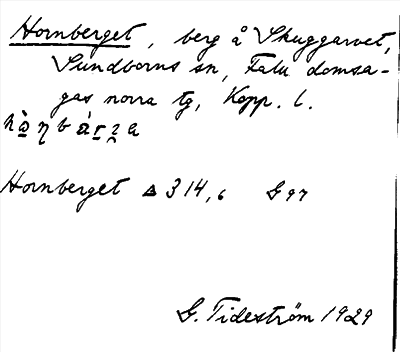 Hornberget, berg å Skuggarvet,
Sundborns sn, Falu domsa-
gas norra tg, Kopp. l.
Hornberget Δ 314,6 G 97
G. Tideström 1929